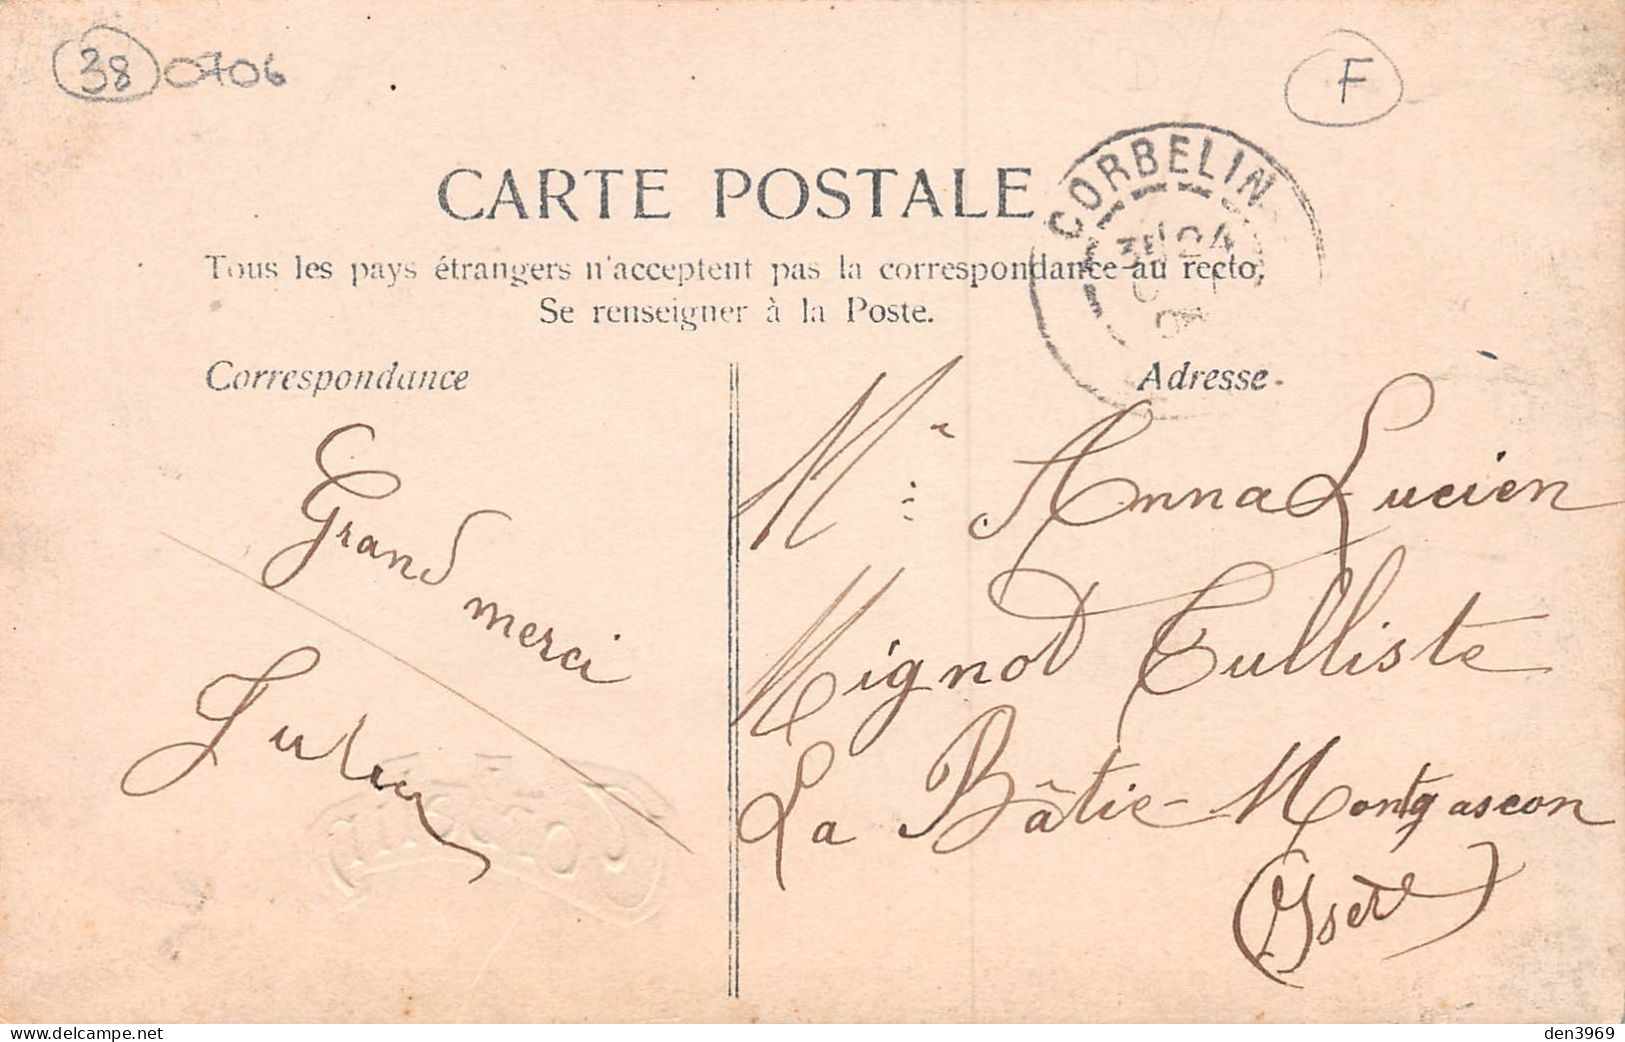 38 0706
F
CORBELIN
24
CARTE POSTALE
Tous les pays étrangers n'acceptent pas la correspondance au recto,
Se renseigner à la Poste.
Correspondance
Adresse.
Grand merci
M Anna Lucien
Mignot Tulliste
La Bâtie-Montgascon
(Isère)
den3969